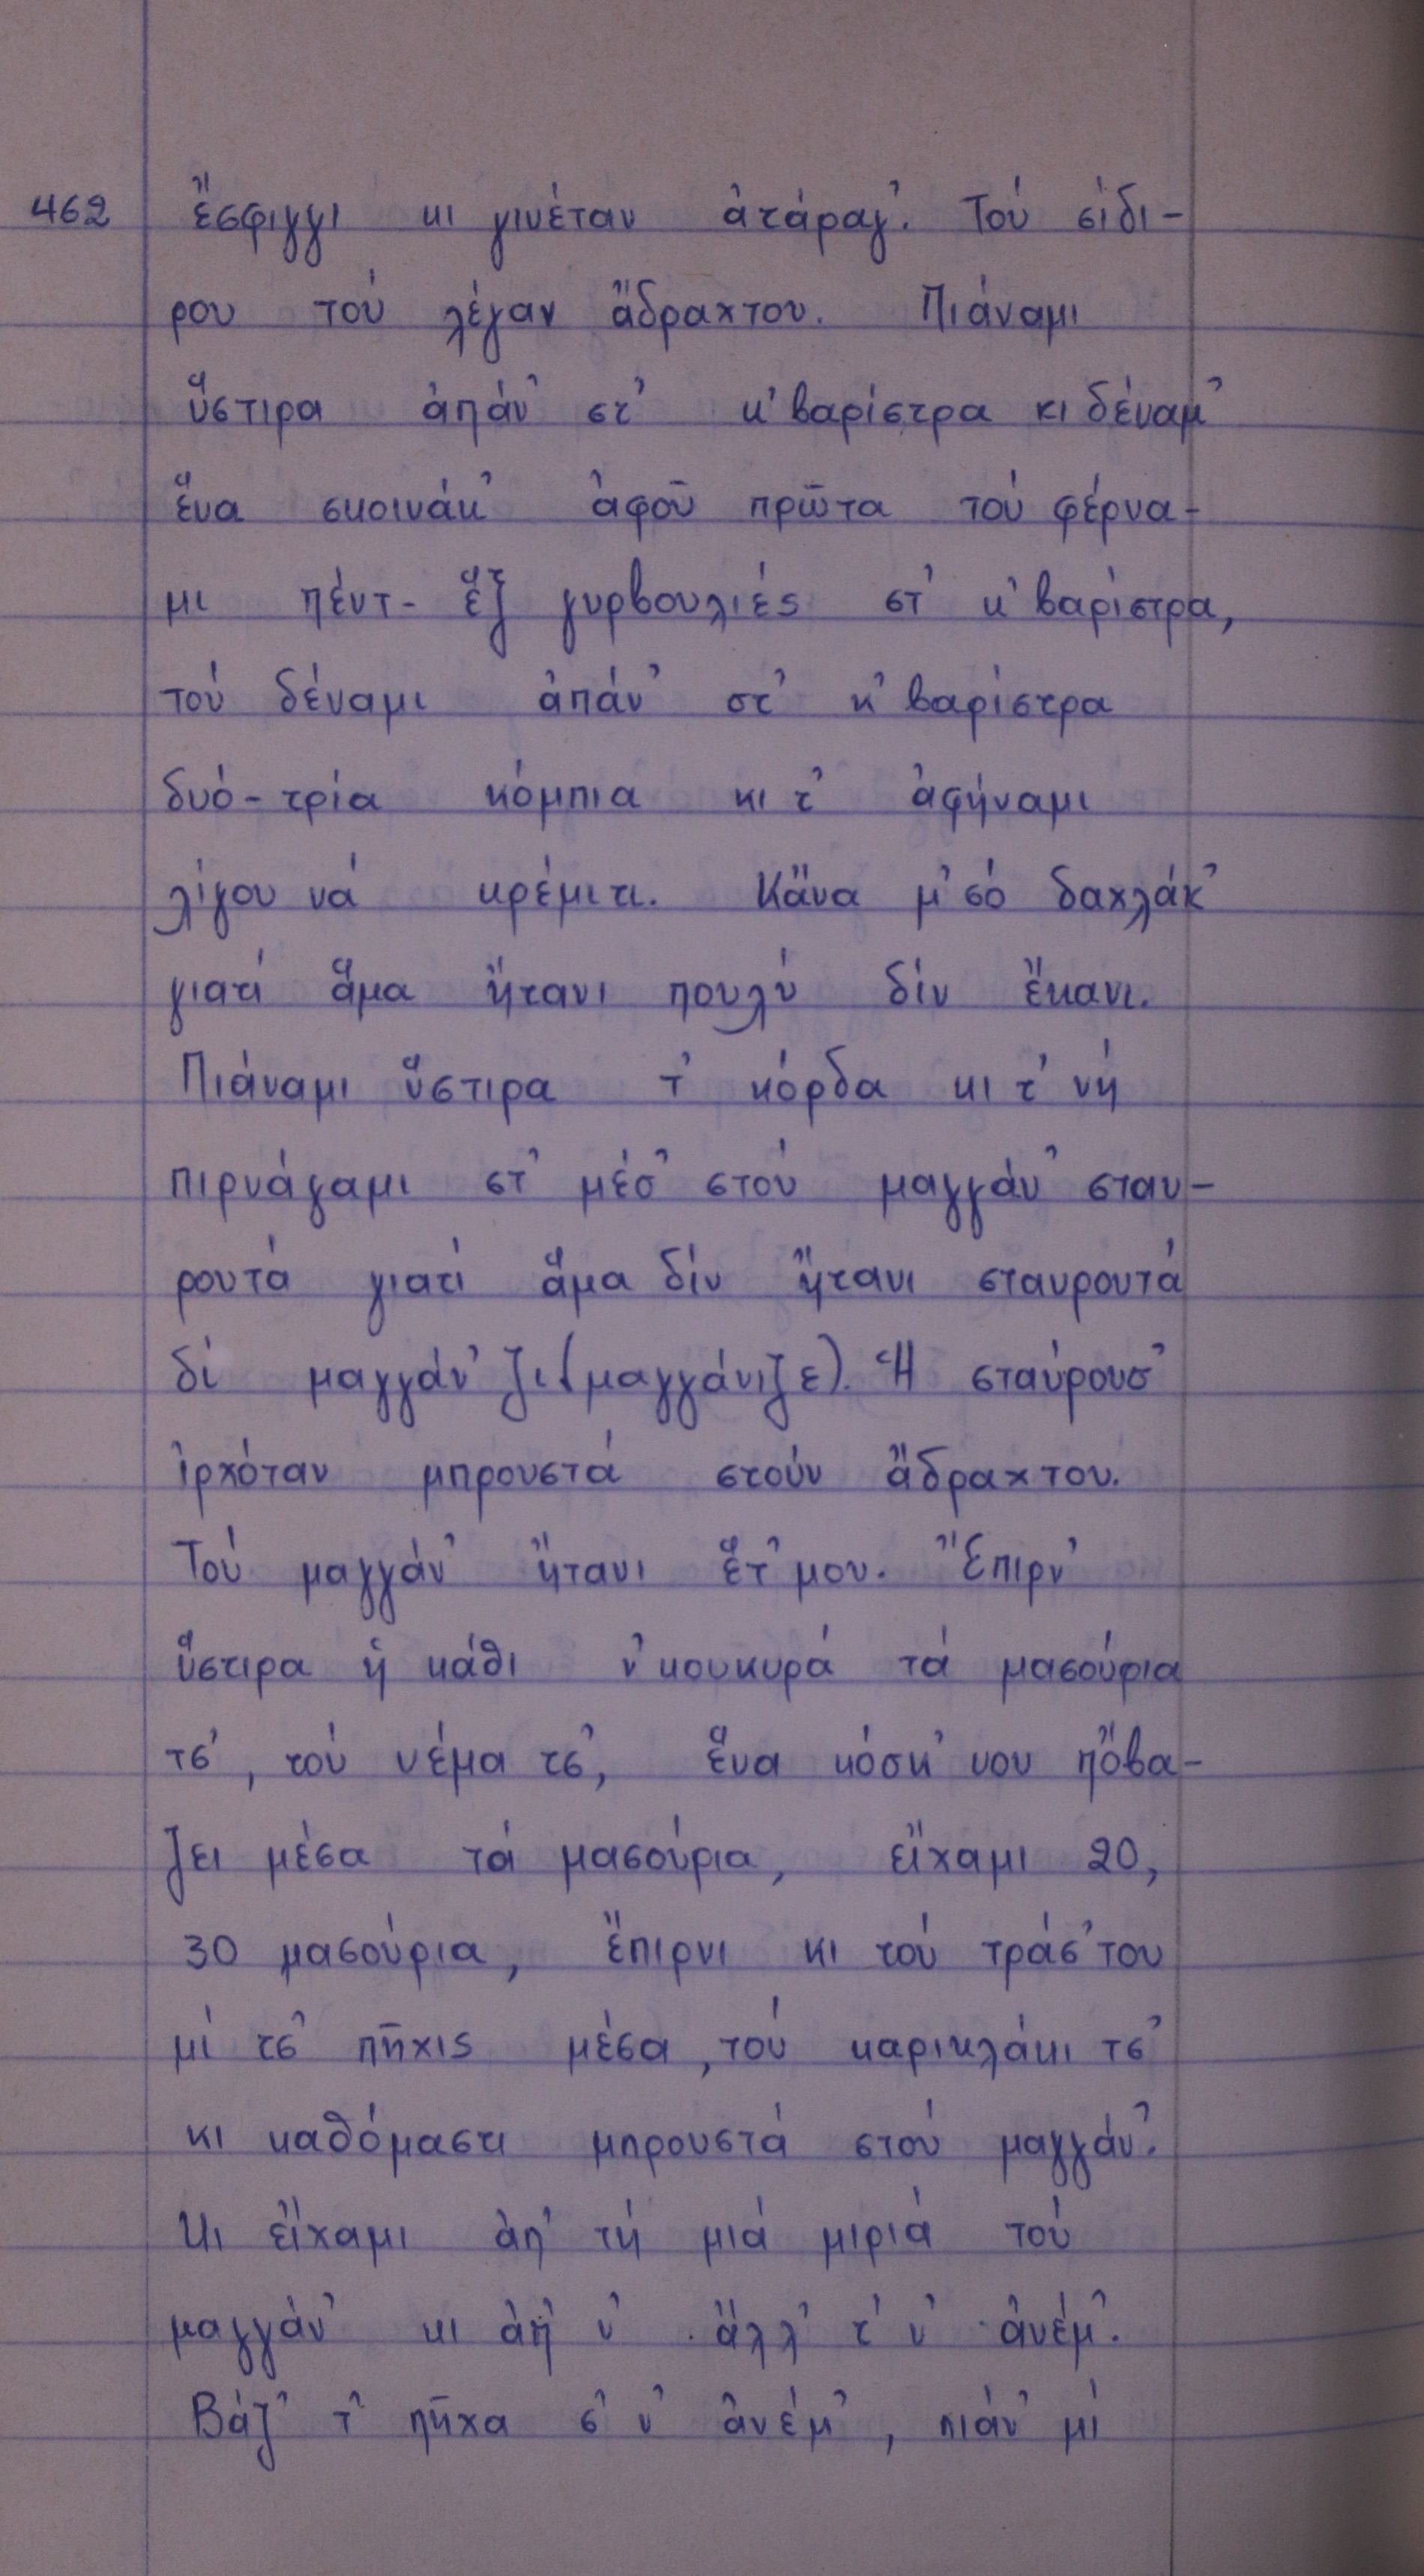 462 ἔσφιγγι κι γινέταν ἀτάραγ'. Τού σίδι-
ρου τού λέγαν ἄδραχτου. Πιάναμι
ὕστιρα ἀπάν' στ' κ'βαρίστρα κι δέναμ'
ἕνα σκοινάκ' ἀφοῦ πρῶτα τού φέρνα-
μι πέντ-ἕξ γυρβουλιές στ' κ'βαρίστρα,
τού δέναμι ἀπάν' στ' κ'βαρίστρα
δυό-τρία κόμπια κι τ' ἀφήναμι
λίγου νά κρέμιτι. Κἄνα μ'σό δαχλάκ'
γιατί ἅμα ἤτανι πουλύ δέν ἔκανι.
Πιάναμι ὕστιρα τ' κόρδα κι τ' νή
πιρνάγαμι στ' μέσ' στού μαγγάν' σταυ-
ρουτά γιατί ἅμα δίν ἤτανι σταυρουτά
δί μαγγάν'ζι (μαγγάνιζε). Ἡ σταύρουσ'
ἰρχόταν μπρουστά στούν ἄδραχτου.
Τού μαγγάν' ἤτανι ἕτ'μου. Ἔπιρν'
ὕστιρα ἡ κάθι ν'κουκυρά τά μασούρια
τσ', τού νέμα τσ', ἕνα κόσκ'νου πὄβα-
ζει μέσα τά μασούρια, εἴχαμι 20,
30 μασούρια, ἔπιρνι κι τού τράσ'του
μί τσ' πῆχις μέσα, τού καρικλάκι τσ'
κι καθόμαστι μπρουστά στού μαγγάν'.
Κι εἴχαμι ἀπ' τή μιά μιριά τού
μαγγάν' κι ἀπ' ν' ἄλλ' τ' ν' ἀνέμ'.
Βάζ' τ' πῆχα σ' ν' ἀνέμ', πιάν' μί